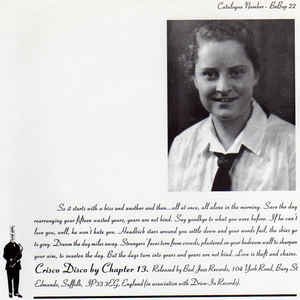 Catalogue Number - BaBop 22
So it starts with a kiss and another and then...all at once, all alone in the morning. Save the day
rearranging your fifteen wasted years, years are not kind. Say goodbye to what you were before. If he can't
love you, well, he won't hate you. Headlost stars around you settle down and your words fail, the skies go
to grey. Dream the day miles away. Strangers' faces torn from crowds, plastered on your bedroom wall to sharpen your
aim, to invoke the day. But the days turn into years and years are not kind. Love is theft and chains.
Crisco Disco by Chapter 13. Released by Bad Jazz Records, 104 York Road, Bury St
Edmunds, Suffolk, IP33 3EG, England (in association with Drive-In Records).